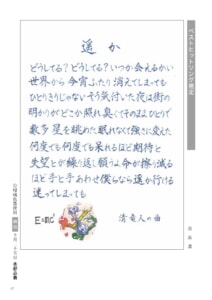 遥か
どうしてる？どうしてる？いつか会えるかい
世界から 今宵ふたり 消えてしまっても
ひとりきりじゃない そう気付いた 夜は街の
明かりがどこか照れ臭くて そのままひとりで
数多 星を眺めた 眠れなくて 強さに変えた
何度でも何度でも乗れるほど 期待と
失望とが繰り返し願うよ 命が擦り減る
ほど手と手あわせ 僕らなら遥か行ける
迷ってしまっても
E=mc²
清竜人の曲
ベストヒットソング検定